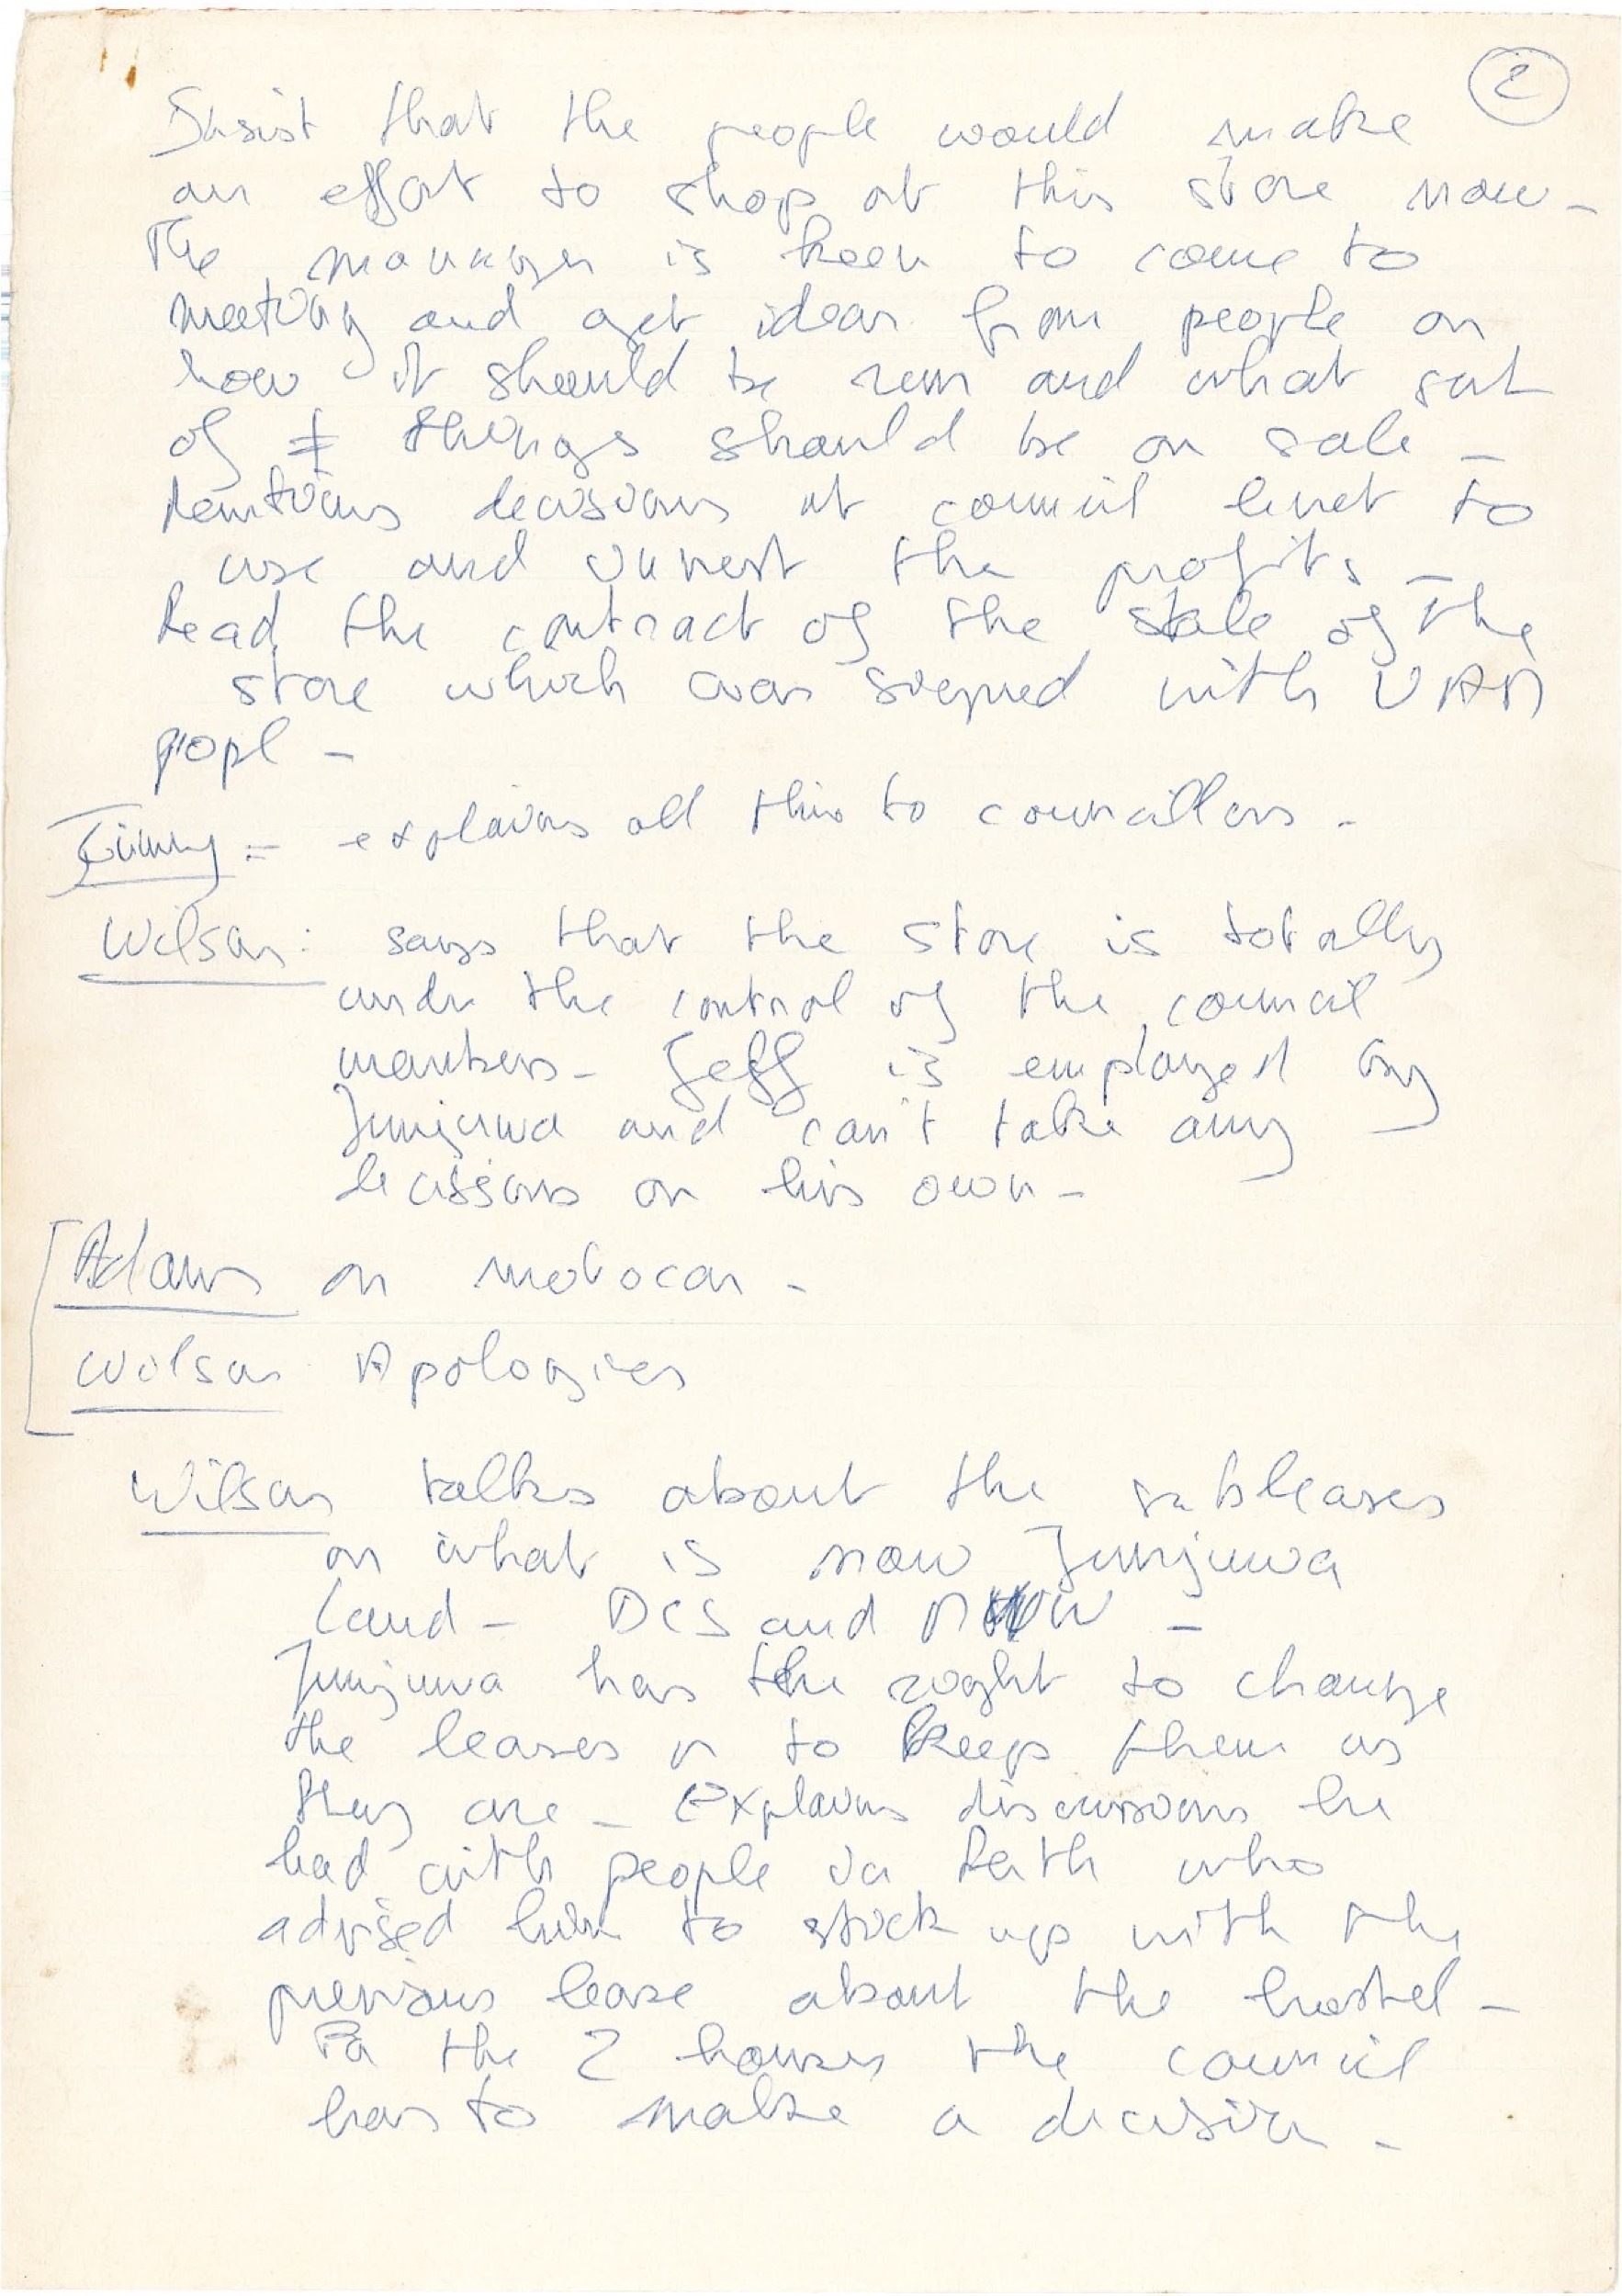 2
Insist that the people would make
an effort to shop at this store now -
The manager is keen to come to
meeting and get ideas from people on
how it should be run and what sort
of things should be on sale -
decisions at council level to
use and invest the profits -
Read the contract of the sale of the
store which was signed with UAM
popl -
Jimmy = explains all this to councillors -
Wilson : says that the store is totally
under the control of the council
members - Jeff is employed by
Junjuwa and can't take any
decisions on his own -
Adams on motocar -
Wilson Apologies
Wilson talks about the subleases
on what is now Junjuwa
land - DCS and -
Junjuwa has the right to change
the leases or to keep them as
they are - Explains discussions he
had with people in Perth who
advised him to stick up with the
previous lease about the hostel -
For the 2 houses the council
has to make a decision -